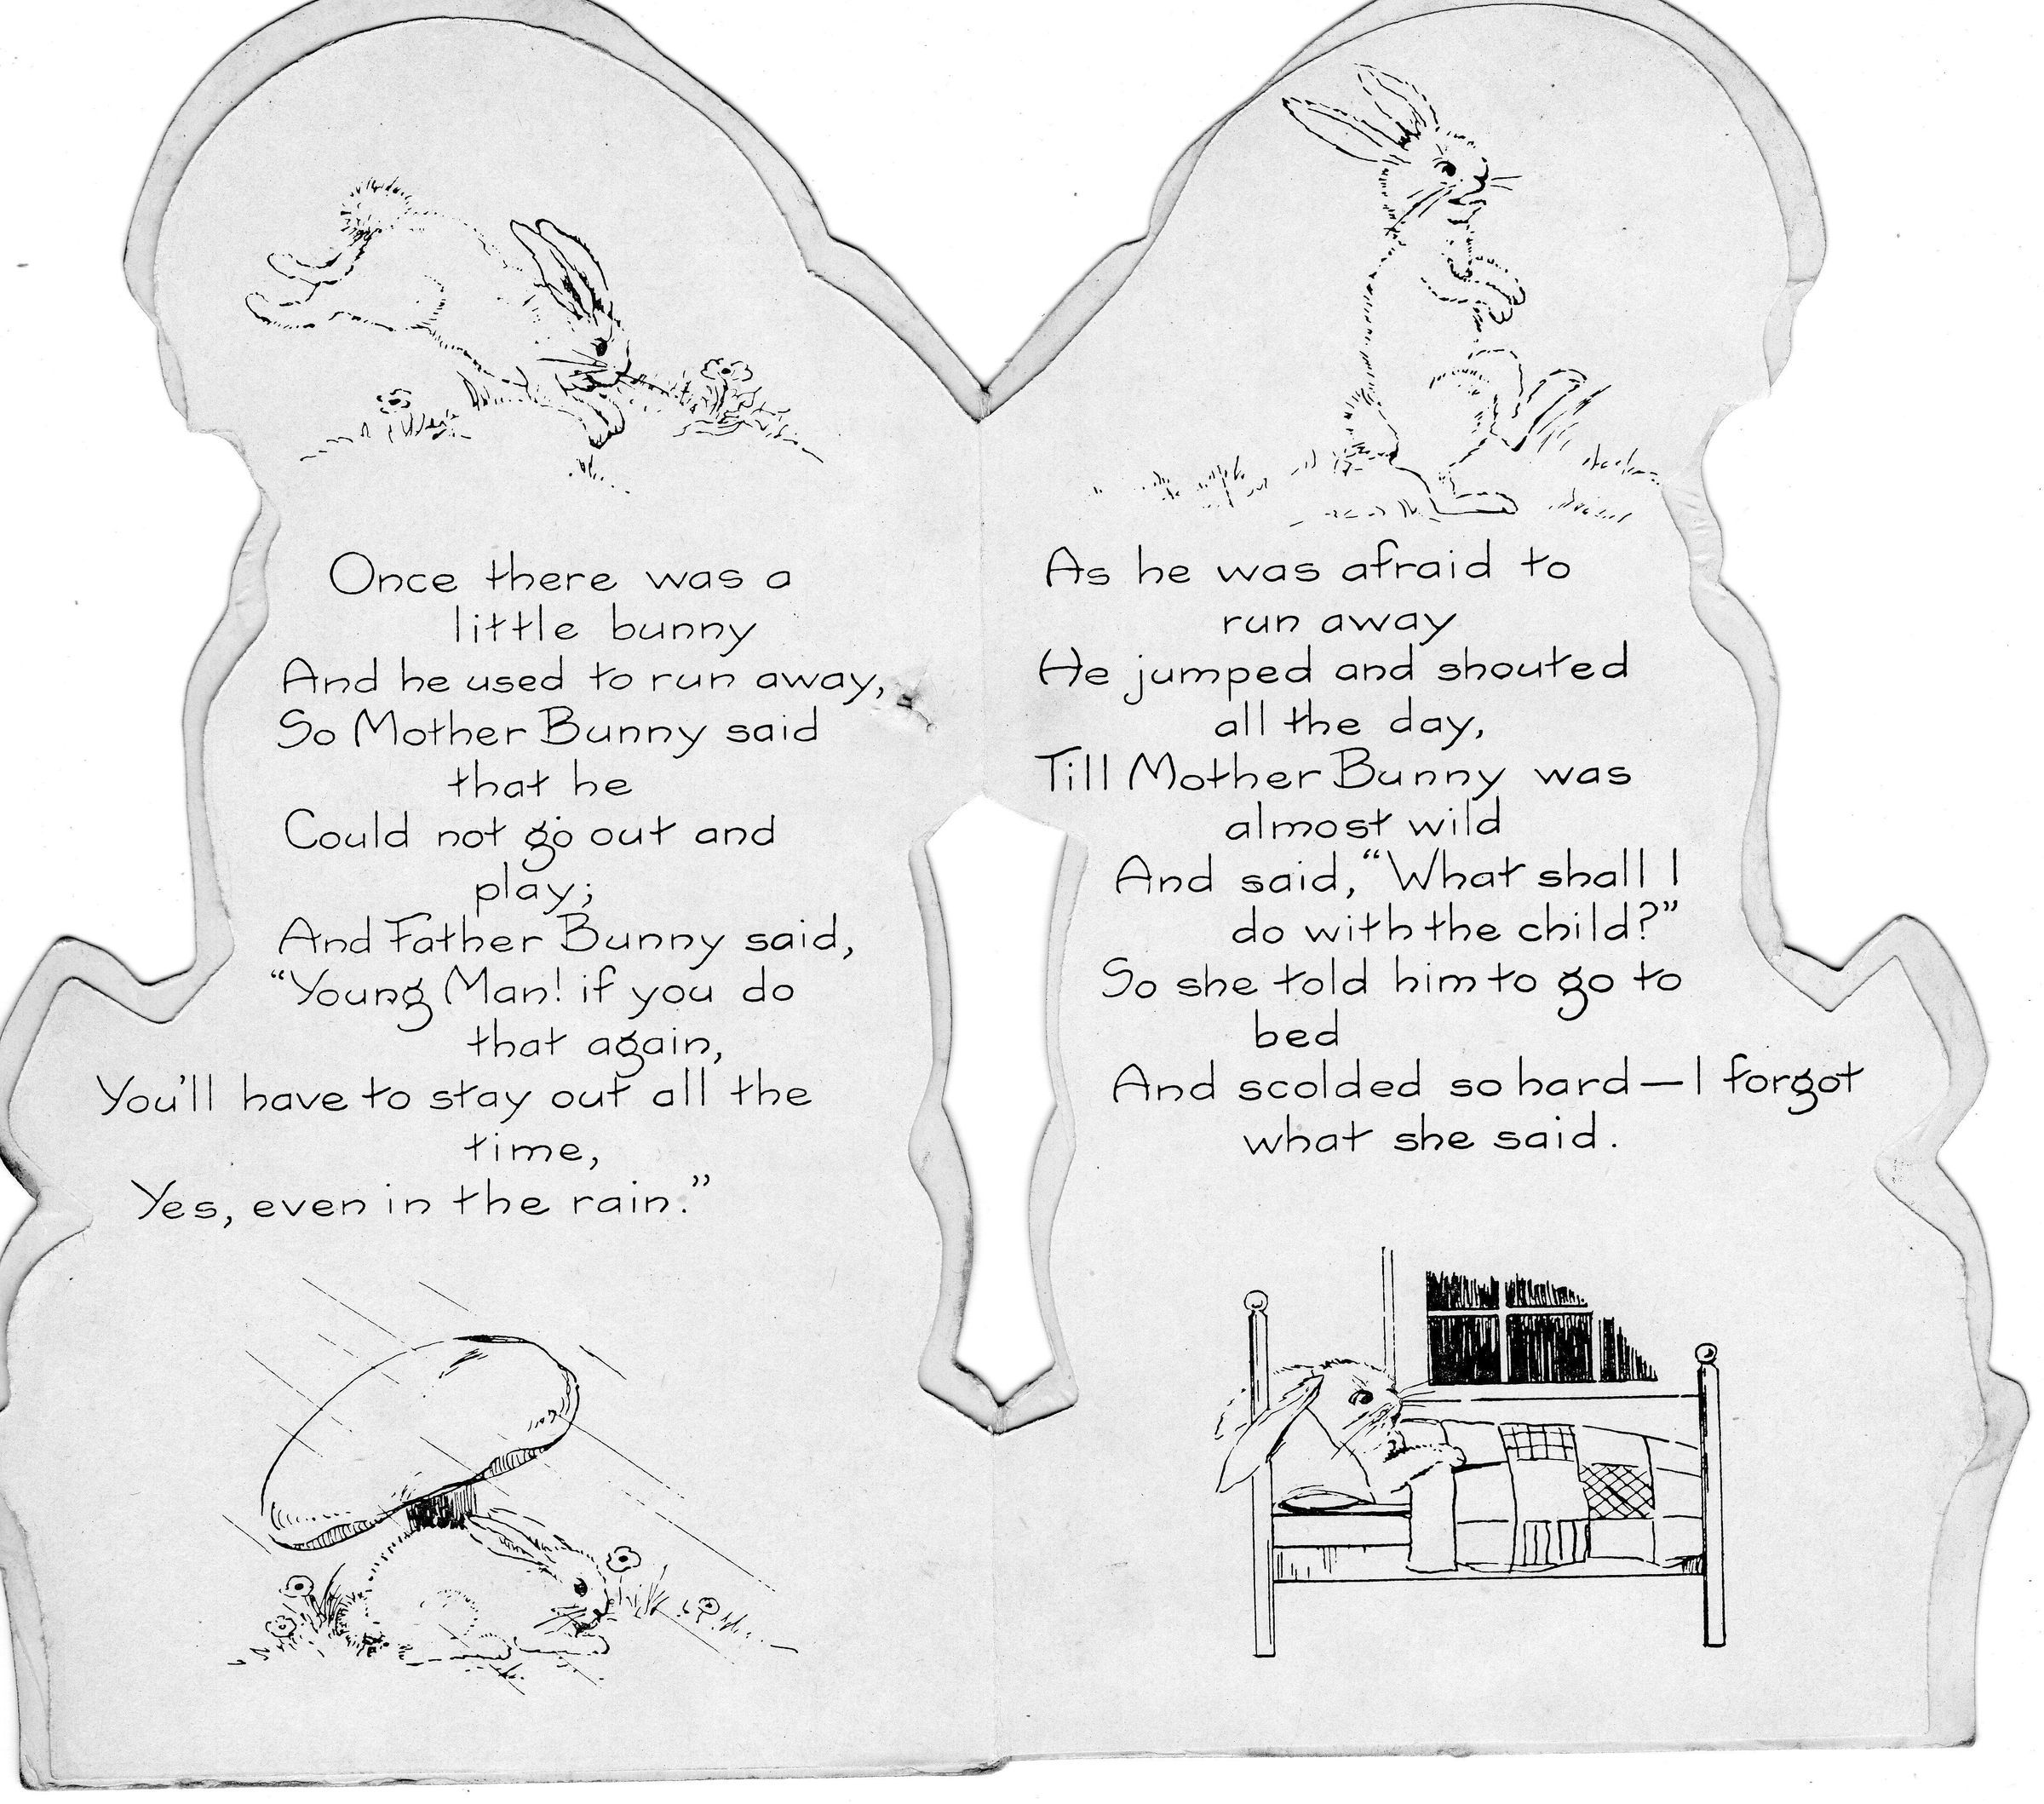 Once there was a
little bunny
And he used to run away,
So Mother Bunny said
that he
Could not go out and
play;
And Father Bunny said,
“Young Man! if you do
that again,
You'll have to stay out all the
time,
Yes, even in the rain.”
As he was afraid to
run away
He jumped and shouted
all the day,
Till Mother Bunny was
almost wild
And said, “What shall I
do with the child?”
So she told him to go to
bed
And scolded so hard—I forgot
what she said.